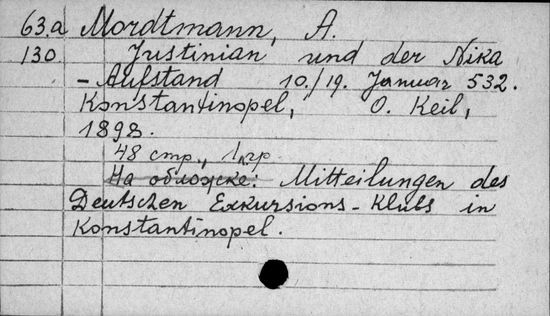 63.a Mordtmann, A.
130 Justinian und der Nika
- Aufstand 10./19. Januar 532.
Konstantinopel, O. Keil,
1898.
48 стр., 1 л. гр.
На обложке: Mitteilungen des
Deutschen Exkursions-Klubs in
Konstantinopel.